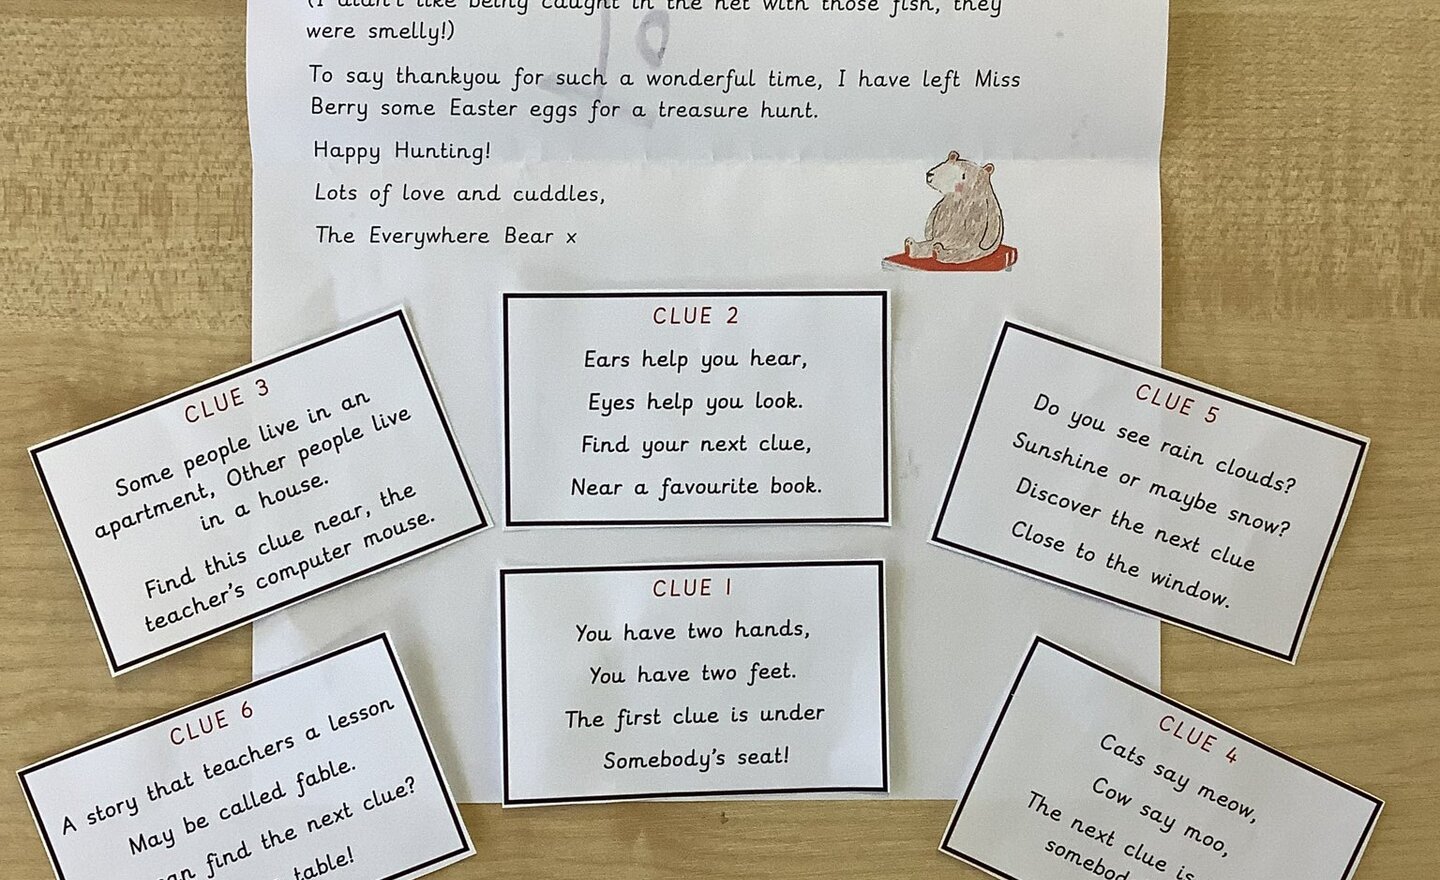 (I didn't like being caught in the net with those fish, they
were smelly!)
To say thankyou for such a wonderful time, I have left Miss
Berry some Easter eggs for a treasure hunt.
Happy Hunting!
Lots of love and cuddles,
The Everywhere Bear x
CLUE 3
Some people live in an
apartment, Other people live
in a house.
Find this clue near, the
teacher's computer mouse.
CLUE 2
Ears help you hear,
Eyes help you look.
Find your next clue,
Near a favourite book.
CLUE 5
Do you see rain clouds?
Sunshine or maybe snow?
Discover the next clue
Close to the window.
CLUE 6
A story that teachers a lesson
May be called fable.
find the next clue?
table!
CLUE 1
You have two hands,
You have two feet.
The first clue is under
Somebody's seat!
CLUE 4
Cats say meow,
Cow say moo,
The next clue is